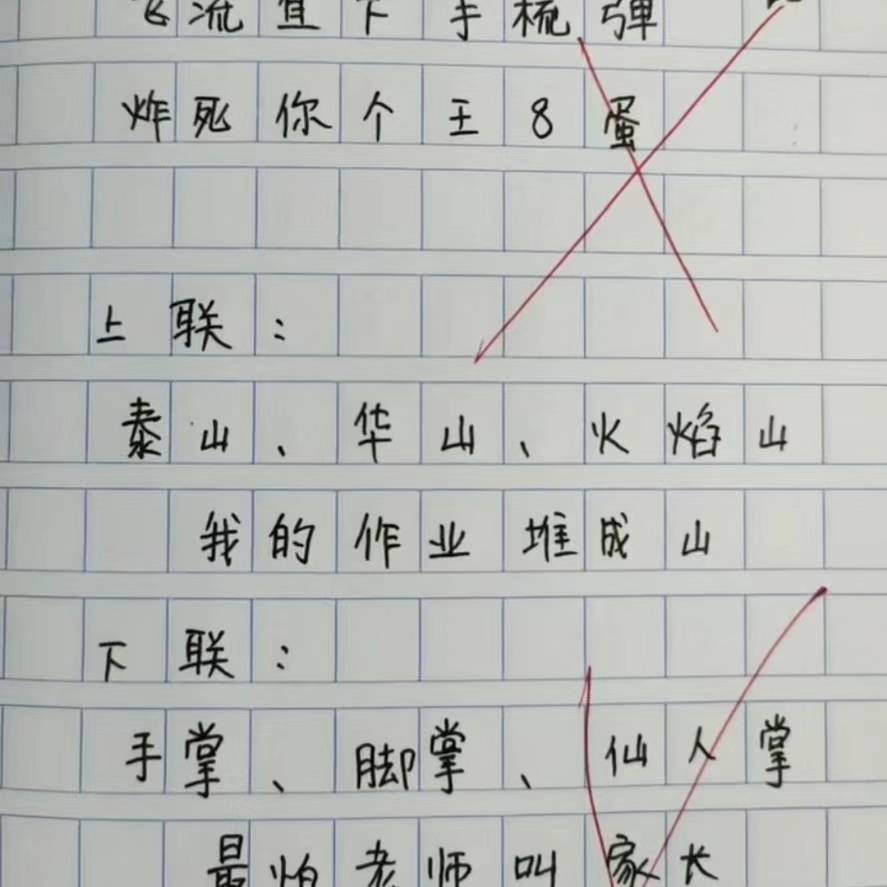 飞流直下手榴弹
炸死你个王8蛋
上联：
泰山、华山、火焰山
我的作业堆成山
下联：
手掌、脚掌、仙人掌
最怕老师叫家长